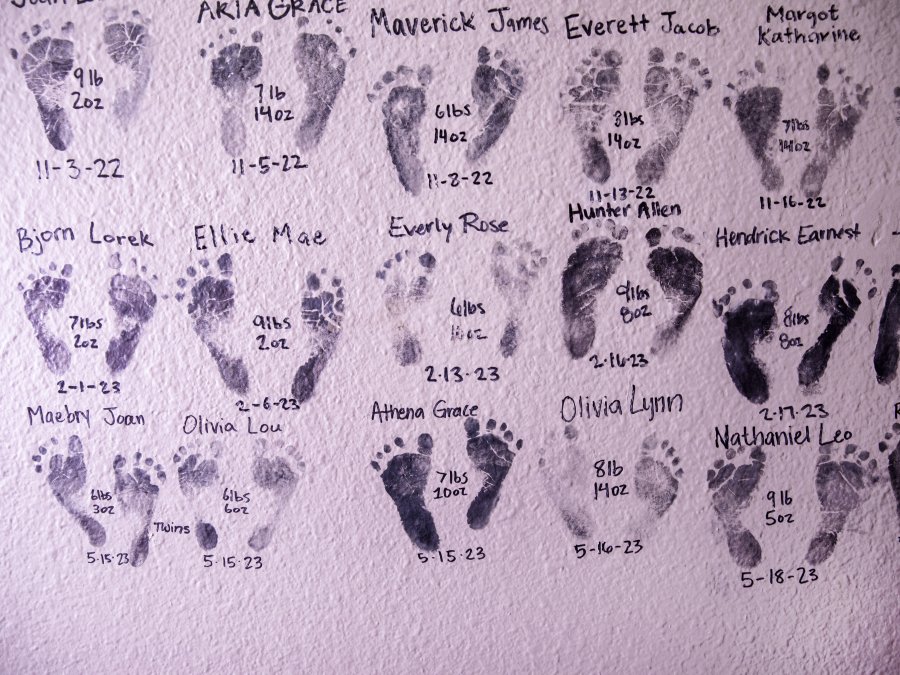 ARIA GRACE
9 lb
2oz
11-3-22
7 lb
14oz
11-5-22
Maverick James
6lbs
14oz
11-8-22
Everett Jacob
8lbs
14oz
11-13-22
Margot
Katharine
7lbs
14oz
11-16-22
Bjorn Lorek
7lbs
2oz
2-1-23
Ellie Mae
9lbs
2oz
2-6-23
Everly Rose
6lbs
2-13-23
Hunter Allen
9lbs
8oz
2-16-23
Hendrick Earnest
8lbs
8oz
2-17-23
Maebry Joan
6lbs
3oz
5-15-23
Twins
Olivia Lou
6lbs
6oz
5-15-23
Athena Grace
7lbs
10oz
5-15-23
Olivia Lynn
8lb
14oz
5-16-23
Nathaniel Leo
9 lb
5oz
5-18-23